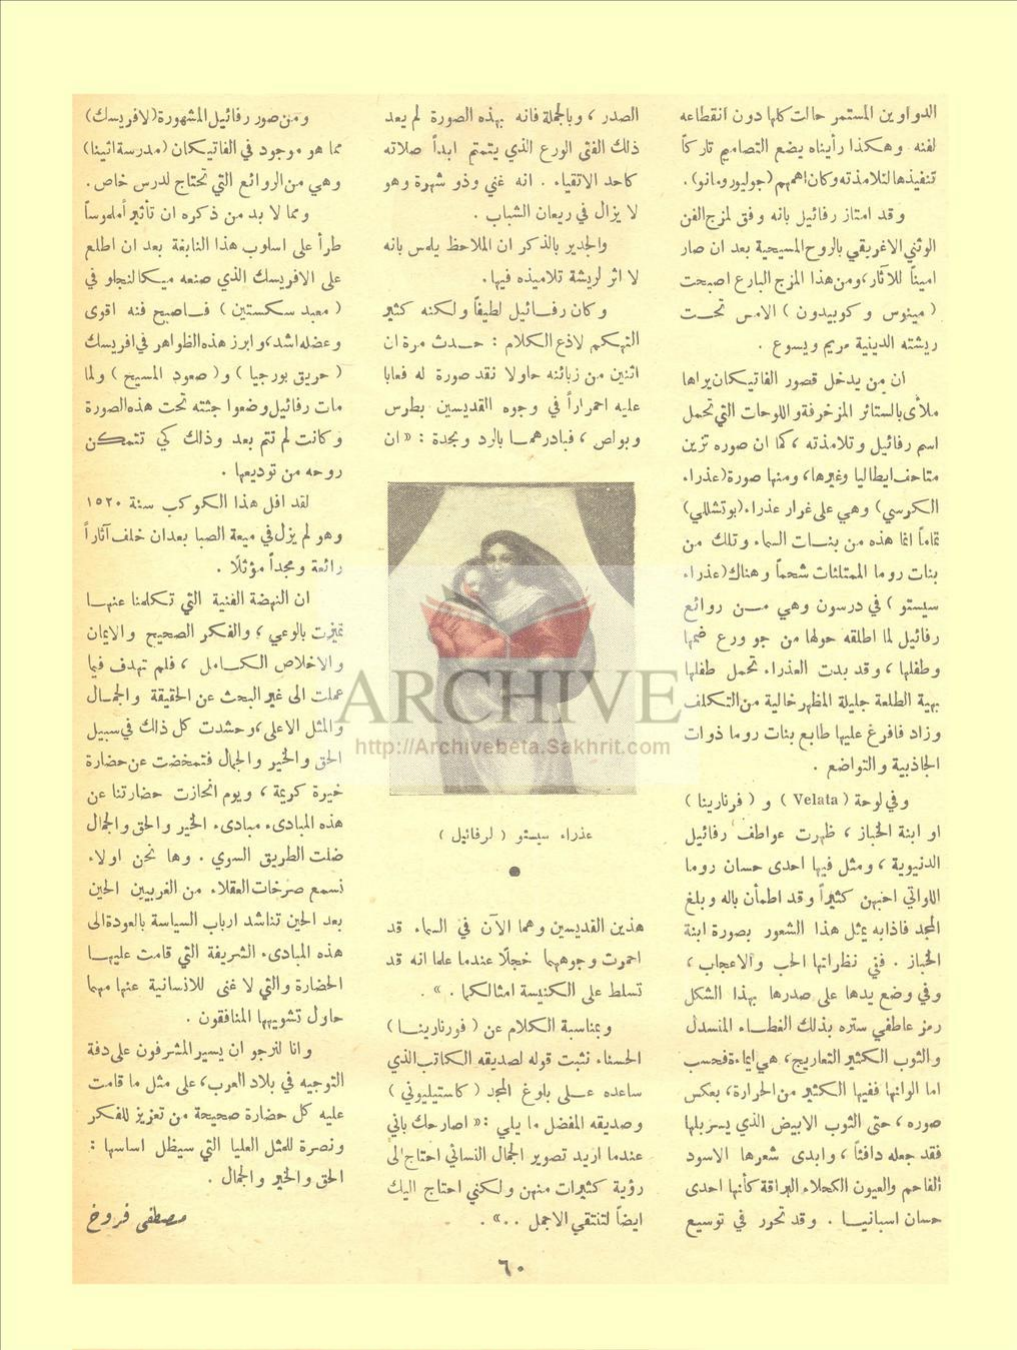 الدواوين المستمر حالت كلها دون انقطاعه
لفنه وهكذا رأيناه يضع التصاميم تاركاً
تنفيذها لتلامذته وكان اهمهم (جوليو رومانو).
وقد امتاز رفائيل بانه وفق لمزج الفن
الوثني الاغريقي بالروح المسيحية بعد ان صار
اميناً للآثار، ومن هذا المزج البارع اصبحت
( مينوس وكوبيدون ) الامس تحت
ريشته الدينية مريم ويسوع .
ان من يدخل قصور الفاتيكان يراها
ملأى بالستائر المزخرفة واللوحات التي تحمل
اسم رفائيل وتلامذته ، كما ان صوره تزين
متاحف ايطاليا وغيرها، ومنها صورة (عذراء
الكرسي) وهي على غرار عذراء (بوتشللي)
تماماً انما هذه من بنات السماء وتلك من
بنات روما الممتلئات شحماً وهناك (عذراء
سيستو ) في درسون وهي من روائع
رفائيل لما اطلقه حولها من جو ورع ضمها
وطفلها ، وقد بدت العذراء تحمل طفلها
بهية الطلعة جليلة المظهر خالية من التكلف
وزاد فافرغ عليها طابع بنات روما ذوات
الجاذبية والتواضع .
وفي لوحة ( Velata ) و ( فرنارينا )
او ابنة الخباز ، ظهرت عواطف رفائيل
الدنيوية ، ومثل فيها احدى حسان روما
اللواتي احبهن كثيراً وقد اطمأن باله وبلغ
المجد فاذا به يمثل هذا الشعور بصورة ابنة
الخباز . ففي نظراتها الحب والاعجاب ،
وفي وضع يدها على صدرها بهذا الشكل
رمز عاطفي ستره بذلك الغطاء المنسدل
والثوب الكثير التعاريج، هي ايماءة فحسب
اما الوانها ففيها الكثير من الحرارة، بعكس
صوره ، حتى الثوب الابيض الذي يسربلها
فقد جعله دافئاً ، وابدى شعرها الاسود
الفاحم والعيون الكحلاء البراقة كأنها احدى
حسان اسبانيا . وقد تحرر في توسيع
الصدر ، وبالجملة فانه بهذه الصورة لم يعد
ذلك الفتى الورع الذي يتمتم ابداً صلاته
كاحد الاتقياء . انه غني وذو شهرة وهو
لا يزال في ريعان الشباب .
والجدير بالذكر ان الملاحظ يلمس بانه
لا اثر لريشة تلاميذه فيها.
وكان رفائيل لطيفاً ولكنه كثير
التهكم لاذع الكلام : حدث مرة ان
اثنين من زبائنه حاولا نقد صورة له فعابا
عليه احمراراً في وجوه القديسين بطرس
وبولص ، فبادرهما بالرد وبجدة : « ان
ARCHIVE
http://Archivebeta.Sakhrit.com
عذراء سيستو ( لرفائيل )
هذين القديسين وهما الآن في السماء قد
احمرت وجوههما خجلاً عندما علما انه قد
تسلط على الكنيسة امثالكما . » .
وبمناسبة الكلام عن ( فورنارينا )
الحسناء نثبت قوله لصديقه الكاتب الذي
ساعده على بلوغ المجد ( كاستيليوني )
وصديقه المفضل ما يلي :« اصارحك باني
عندما اريد تصوير الجمال النسائي احتاج الى
رؤية كثيرات منهن ولكني احتاج اليك
ايضاً لتنتقي الاجمل ..» .
ومن صور رفائيل المشهورة (لافريسك)
مما هو موجود في الفاتيكان (مدرسة اثينا)
وهي من الروائع التي تحتاج لدرس خاص .
ومما لا بد من ذكره ان تأثيراً ملموساً
طرأ على اسلوب هذا النابغة بعد ان اطلع
على الافريسك الذي صنعه ميكالنجلو في
( معبد سكستين ) فاصبح فنه اقوى
وعضله اشد، وابرز هذه الظواهر في افريسك
( حريق بورجيا ) و( صعود المسيح ) ولما
مات رفائيل وضعوا جثته تحت هذه الصورة
وكانت لم تتم بعد وذلك كي تتمكن
روحه من توديعها .
لقد افل هذا الكوكب سنة ١٥٢٠
وهو لم يزل في ميعة الصبا بعد ان خلف آثاراً
رائعة ومجداً مؤثلاً .
ان النهضة الفنية التي تكلمنا عنها
تميزت بالوعي ؛ والفكر الصحيح والايمان
والاخلاص الكامل ، فلم تهدف فيما
عملت الى غير البحث عن الحقيقة والجمال
والمثل الاعلى، وحشدت كل ذاك في سبيل
الحق والخير والجمال فتمخضت عن حضارة
خيرة كريمة ، ويوم انحازت حضارتنا عن
هذه المبادىء مبادىء الخير والحق والجمال
ضلت الطريق السوي . وها نحن اولاء
نسمع صرخات العقلاء من الغربيين الحين
بعد الحين تناشد ارباب السياسة بالعودة الى
هذه المبادىء الشريفة التي قامت عليها
الحضارة والتي لا غنى للانسانية عنها مهما
حاول تشويهها المنافقون .
وانا لنرجو ان يسير المشرفون على دفة
التوجيه في بلاد العرب، على مثل ما قامت
عليه كل حضارة صحيحة من تعزيز للفكر
ونصرة للمثل العليا التي سيظل اساسها :
الحق والخير والجمال .
مصطفى فروخ
٦٠